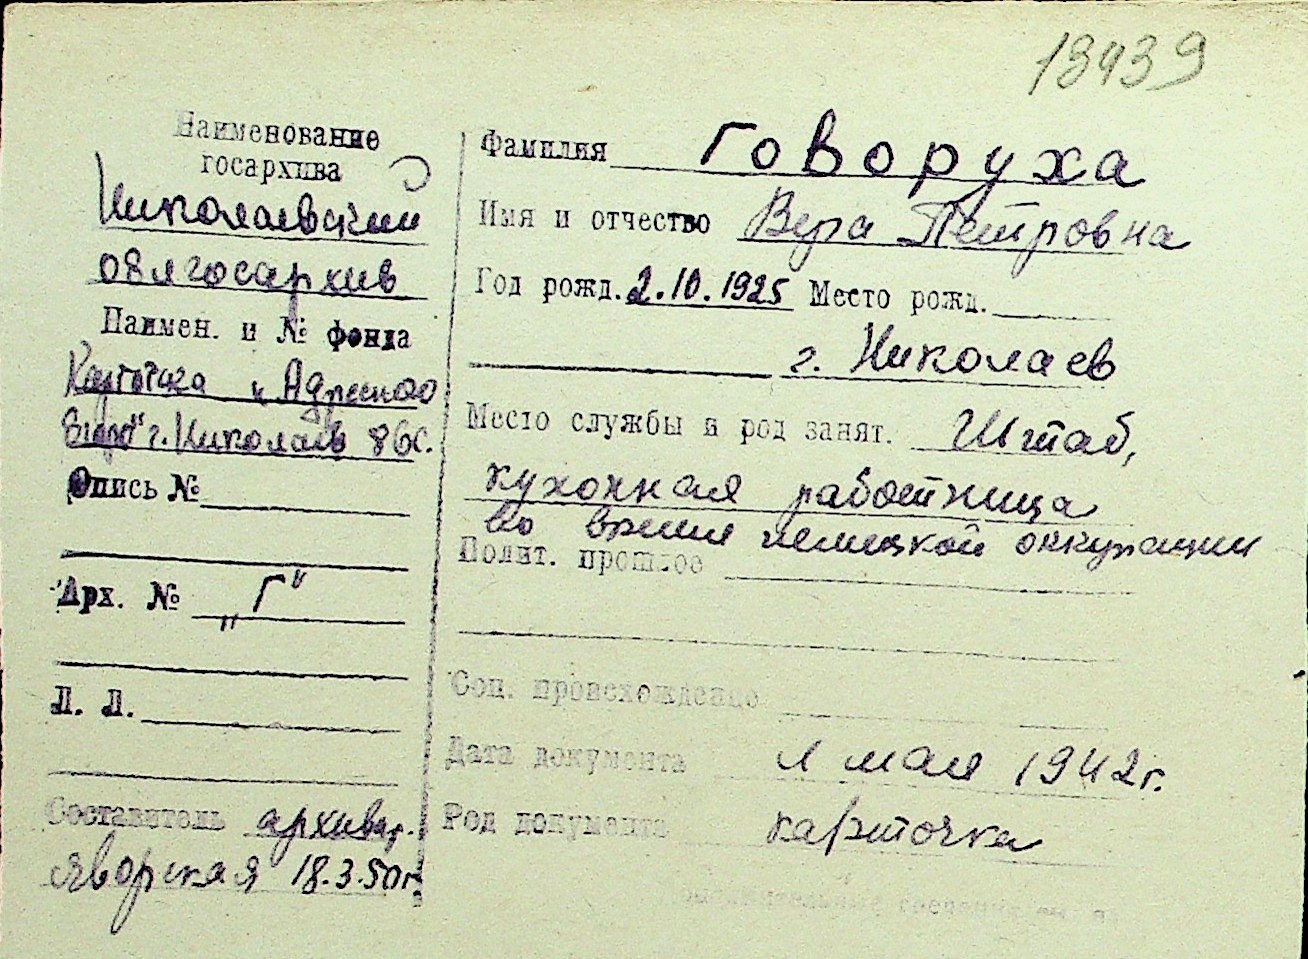 13439
Наименование
госархива
Николаевский
облгосархив
Наимен. и № фонда
Картотека „Адресное
бюро" г. Николаев
Опись №
Арх. № „Г"
Л. Л.
Составитель архивар.
Яворская 18.3.50г.
Фамилия Говоруха
Имя и отчество Вера Петровна
Год рожд. 2.10.1925 Место рожд.
г. Николаев
Место службы и род занят. Штаб,
кухонная работница
во время немецкой оккупации
Полит. прошлое
Соц. происхождение
Дата документа 1 мая 1942г.
Род документа карточка